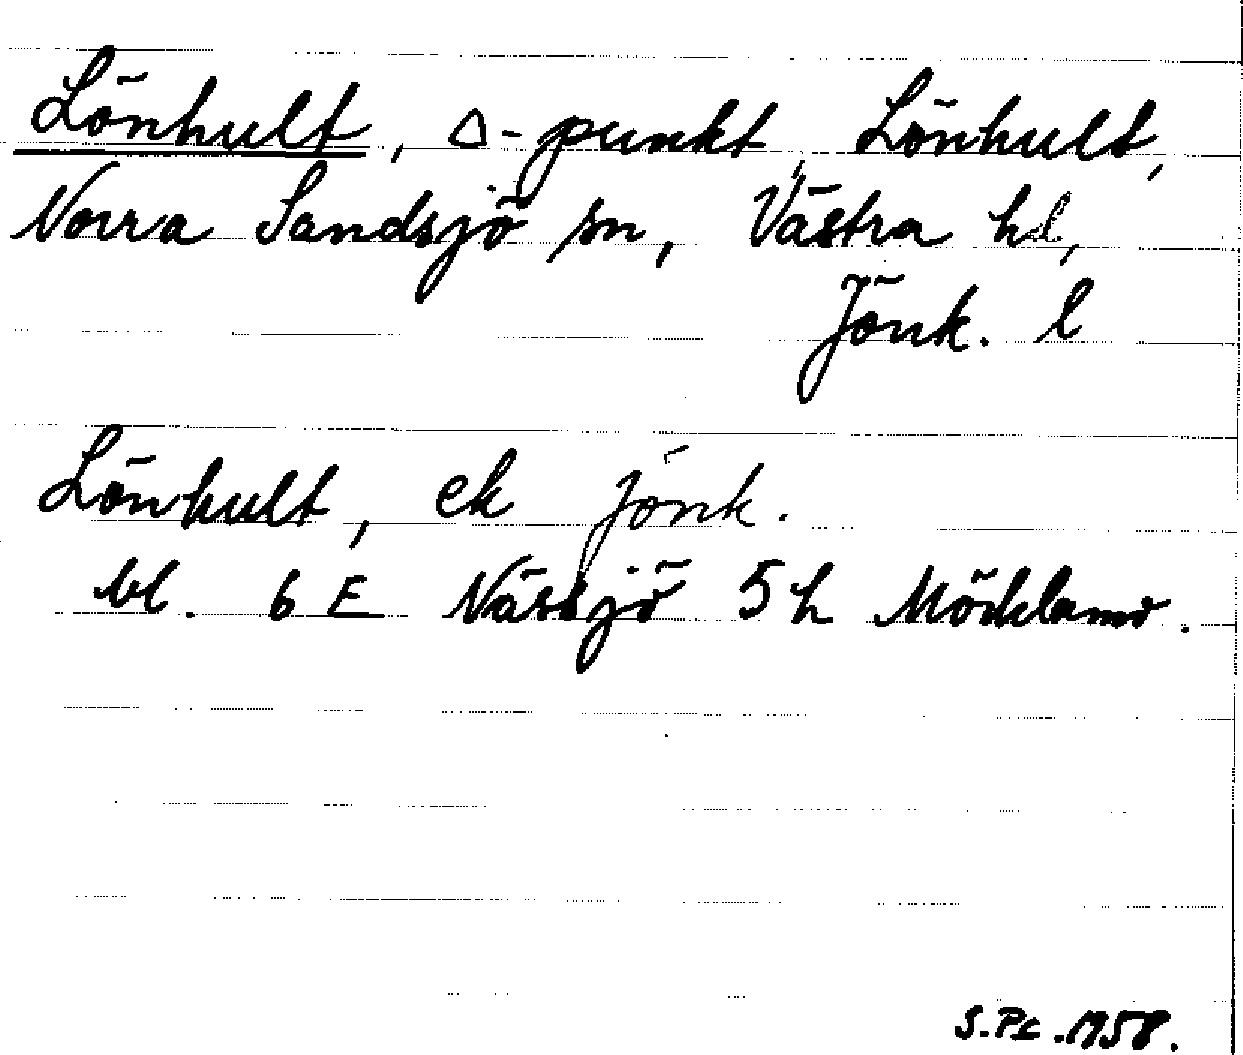 Lönhult, △-punkt, Lönhult,
Norra Sandsjö sn, Västra hd,
Jönk. l
Lönhult, ek Jönk.
bl. 6 E Nässjö 5 h Möcklamo.
S.Pc. 1958.